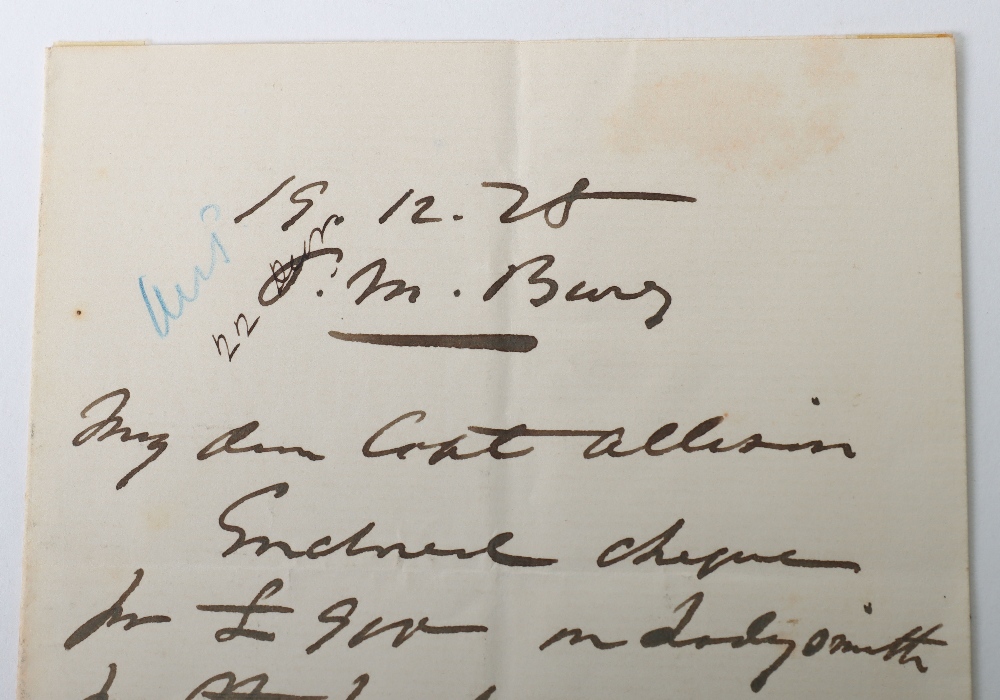 19. 12. 78
P. M. Burg
My dear Capt Allison
Enclosed cheque
for £ 900 on Ladysmith